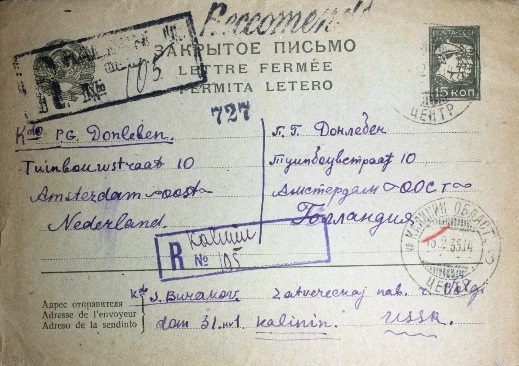 ПОЧТА СССР
15 КОП.
ЗАКРЫТОЕ ПИСЬМО
LETTRE FERMÉE
FERMITA LETERO
№ 105
727
ЦЕНТР
K-do P.G. Donleben.
Tuinbouwstraat 10
Amsterdam-oost
Nederland.
П. Г. Донлебен
Туинбоувстраат 10
Амстердам-ООСТ
Голландия
R Калинин
№ 105
КАЛИНИН ОБЛАСТ.
ЦЕНТР
Адрес отправителя
Adresse de l'envoyeur
Adreso de la sendinto
K-do J. Buranov Zatverecnaj nab. r. Volgi
dom 31. Kalinin. USSR.